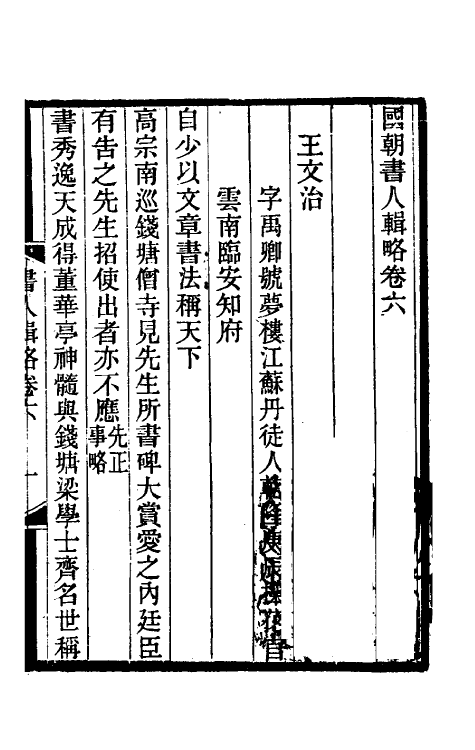 國朝書人輯略卷六
王文治
字禹卿號夢樓江蘇丹徒人乾隆庚辰探花官
雲南臨安知府
自少以文章書法稱天下
高宗南巡錢塘僧寺見先生所書碑大賞愛之內廷臣
有告之先生招使出者亦不應先正事略
書秀逸天成得董華亭神髓與錢塘梁學士齊名世稱
書人輯略卷六
一